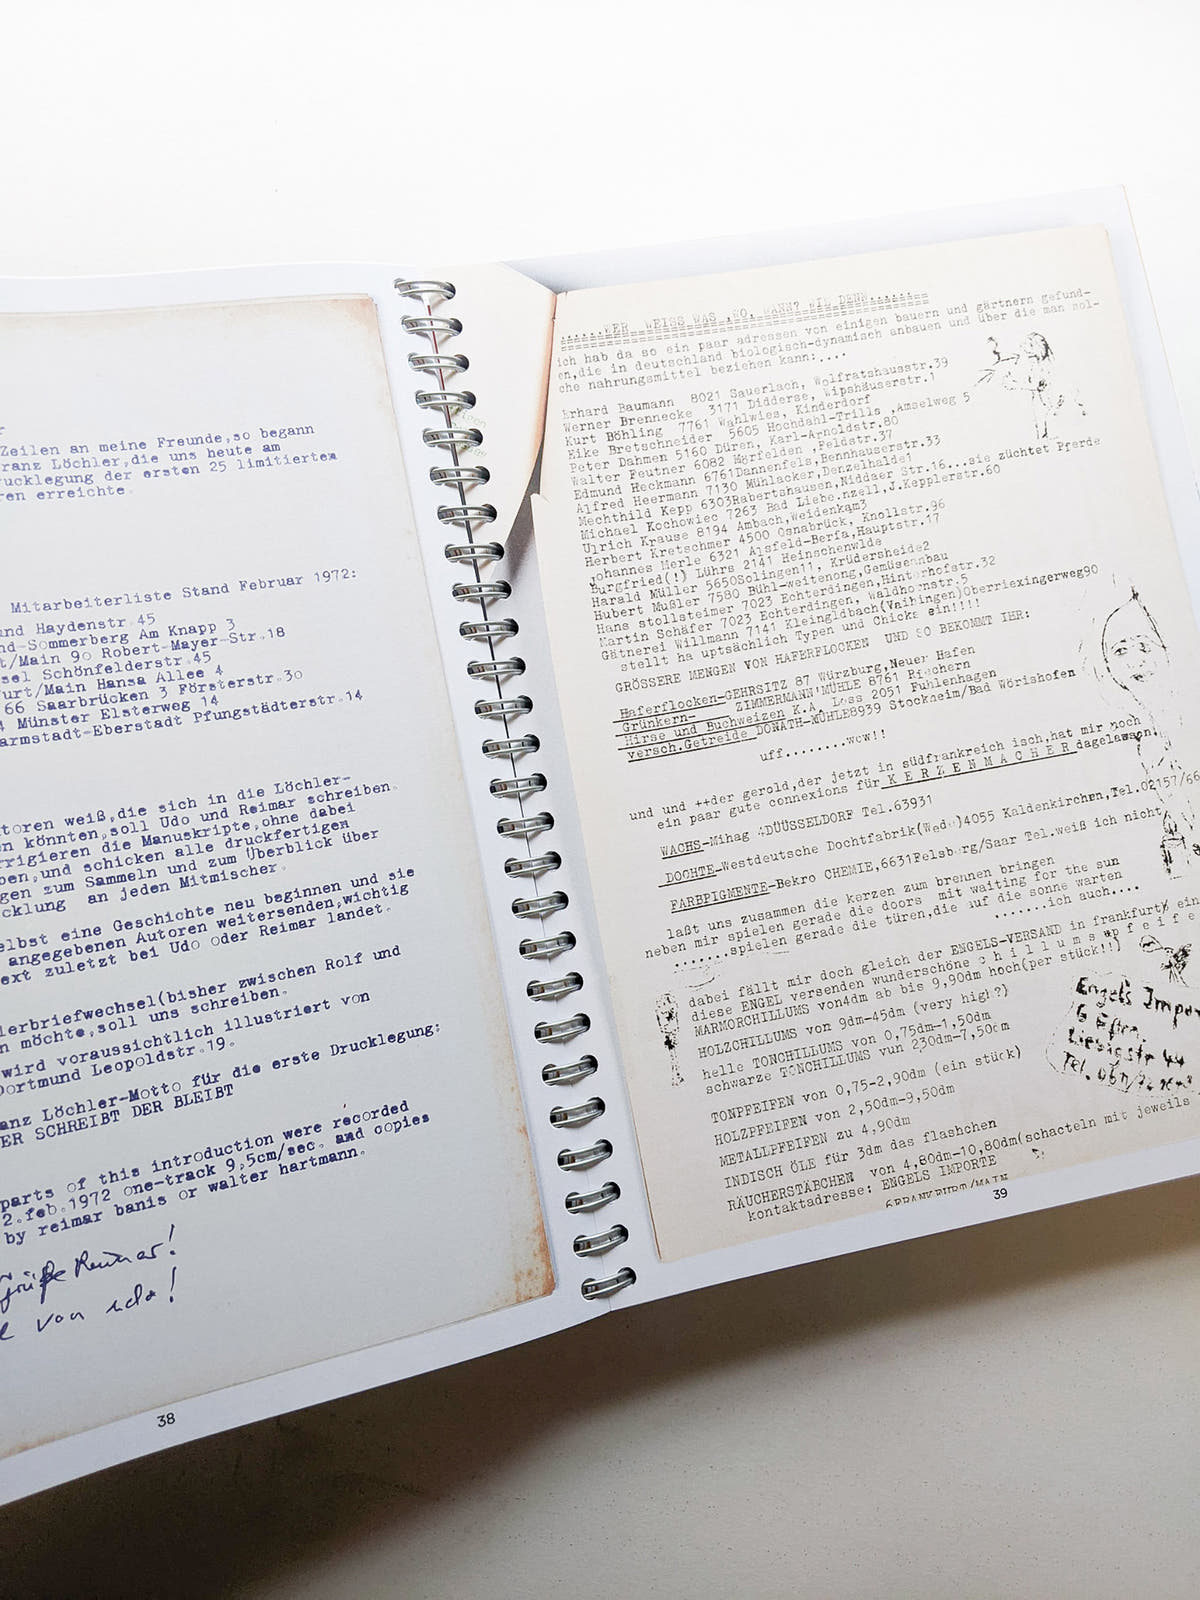 Zeilen an meine Freunde,so begann
ranz Löchler,die uns heute am
rucklegung der ersten 25 limitierten
ren erreichte.
Mitarbeiterliste Stand Februar 1972:
und Haydenstr.45
nd-Sommerberg Am Knapp 3
t/Main 90 Robert-Mayer-Str.18
sel Schönfelderstr.45
furt/Main Hansa Allee 4
66 Saarbrücken 3 Försterstr.30
4 Münster Elsterweg 14
armstadt-Eberstadt Pfungstädterstr.14
toren weiß,die sich in die Löchler-
en könnten,soll Udo und Reimar schreiben.
rrigieren die Manuskripte,ohne dabei
ben,und schicken alle druckfertigen
gen zum Sammeln und zum Überblick über
cklung an jeden Mitmischer.
elbst eine Geschichte neu beginnen und sie
angegebenen Autoren weitersenden,wichtig
ext zuletzt bei Udo oder Reimar landet.
lerbriefwechsel(bisher zwischen Rolf und
n möchte,soll uns schreiben.
wird voraussichtlich illustriert von
Dortmund Leopoldstr.19.
anz Löchler-Motto für die erste Drucklegung:
ER SCHREIBT DER BLEIBT
parts of this introduction were recorded
2.feb.1972 one-track 9,5cm/sec. and copies
by reimar banis or walter hartmann.
Grüße Reimar!
von udo!
38
.....WER WEISS WAS ,WO, WANN? WIE DENN......
ich hab da so ein paar adressen von einigen bauern und gärtnern gefund-
en,die in deutschland biologisch-dynamisch anbauen und über die man sol-
che nahrungsmittel beziehen kann:....
Erhard Baumann 8021 Sauerlach, Wolfratshausstr.39
Werner Brennecke 3171 Didderse, Wipshäuserstr.1
Kurt Böhling 7761 Wahlwies, Kinderdorf
Eike Bretschneider 5605 Hochdahl-Trills ,Amselweg 5
Peter Dahmen 5160 Düren, Karl-Arnoldstr.80
Walter Feutner 6082 Mörfelden ,Feldstr.37
Edmund Heckmann 6761Dannenfels,Bennhauserstr.33
Alfred Heermann 7130 Mühlacker,Denzelhalde1
Mechthild Kepp 6303Rabertshausen,Niddaer Str.16...sie züchtet Pferde
Michael Kochowiec 7263 Bad Liebe.nzell,J.Kepplerstr.60
Ulrich Krause 8194 Ambach,Weidenkam3
Herbert Kretschmer 4500 Osnabrück, Knollstr.96
Johannes Merle 6321 Alsfeld-Berfa,Hauptstr.17
Burgfried(!) Lührs 2141 Heinschenwlde
Harald Müller 5650Solingen11, Krüdersheide2
Hubert Mußler 7580 Bühl-weitenong,Gemüseanbau
Hans stollsteimer 7023 Echterdingen,Hinterhofstr.32
Martin Schäfer 7023 Echterdingen, Waldhornstr.5
Gätnerei Willmann 7141 Kleingldbach(Vaihingen)Oberriexingerweg90
stellt ha uptsächlich Typen und Chicks ein!!!!
GRÖSSERE MENGEN VON HAFERFLOCKEN UND SO BEKOMMT IHR:
Haferflocken-GEHRSITZ 87 Würzburg,Neuer Hafen
Grünkern- ZIMMERMANN'MÜHLE 8761 Riechern
Hirse und Buchweizen K.A. Loss 2051 Fuhlenhagen
versch.Getreide DONATH-MÜHLE8939 Stockheim/Bad Wörishofen
uff........wow!!
und und ++der gerold,der jetzt in südfrankreich isch,hat mir noch
ein paar gute connexions für K E R Z E N M A C H E R dagelassen:
WACHS-Mihag 4DÜÜSSELDORF Tel.63931
DOCHTE-Westdeutsche Dochtfabrik(Wedo)4055 Kaldenkirchen,Tel.02157/66
FARBPIGMENTE-Bekro CHEMIE,6631Felsberg/Saar Tel.weiß ich nicht
laßt uns zusammen die kerzen zum brennen bringen
neben mir spielen gerade die doors mit waiting for the sun
.......spielen gerade die türen,die auf die sonne warten
.......ich auch....
dabei fällt mir doch gleich der ENGELS-VERSAND in frankfurt ein
diese ENGEL versenden wunderschöne c h i l l u m s p f e i f e
MARMORCHILLUMS von4dm ab bis 9,90dm hoch(per stück!!)
HOLZCHILLUMS von 9dm-45dm (very high?)
helle TONCHILLUMS von 0,75dm-1,50dm
schwarze TONCHILLUMS vun 230dm-7,50dm
TONPFEIFEN von 0,75-2,90dm (ein stück)
HOLZPFEIFEN von 2,50dm-9,50dm
METALLPFEIFEN zu 4,90dm
INDISCH ÖLE für 3dm das flashchen
RÄUCHERSTÄBCHEN von 4,80dm-10,80dm(schacteln mit jeweils
kontaktadresse: ENGELS IMPORTE
6FRANKFURT/MAIN
Engels Impor
6 Ffm.
Liebigstr 44
Tel. 0611/72
39